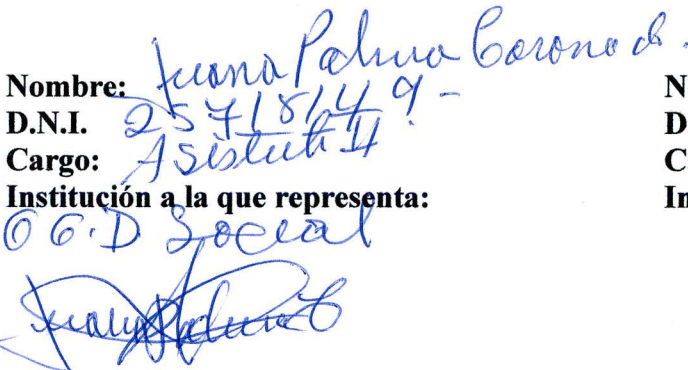 Nombre: Juana Palma Coronado.
D.N.I. 25718149-
Cargo: Asistente II
Institución a la que representa:
O G.D Social
Juana Palma C